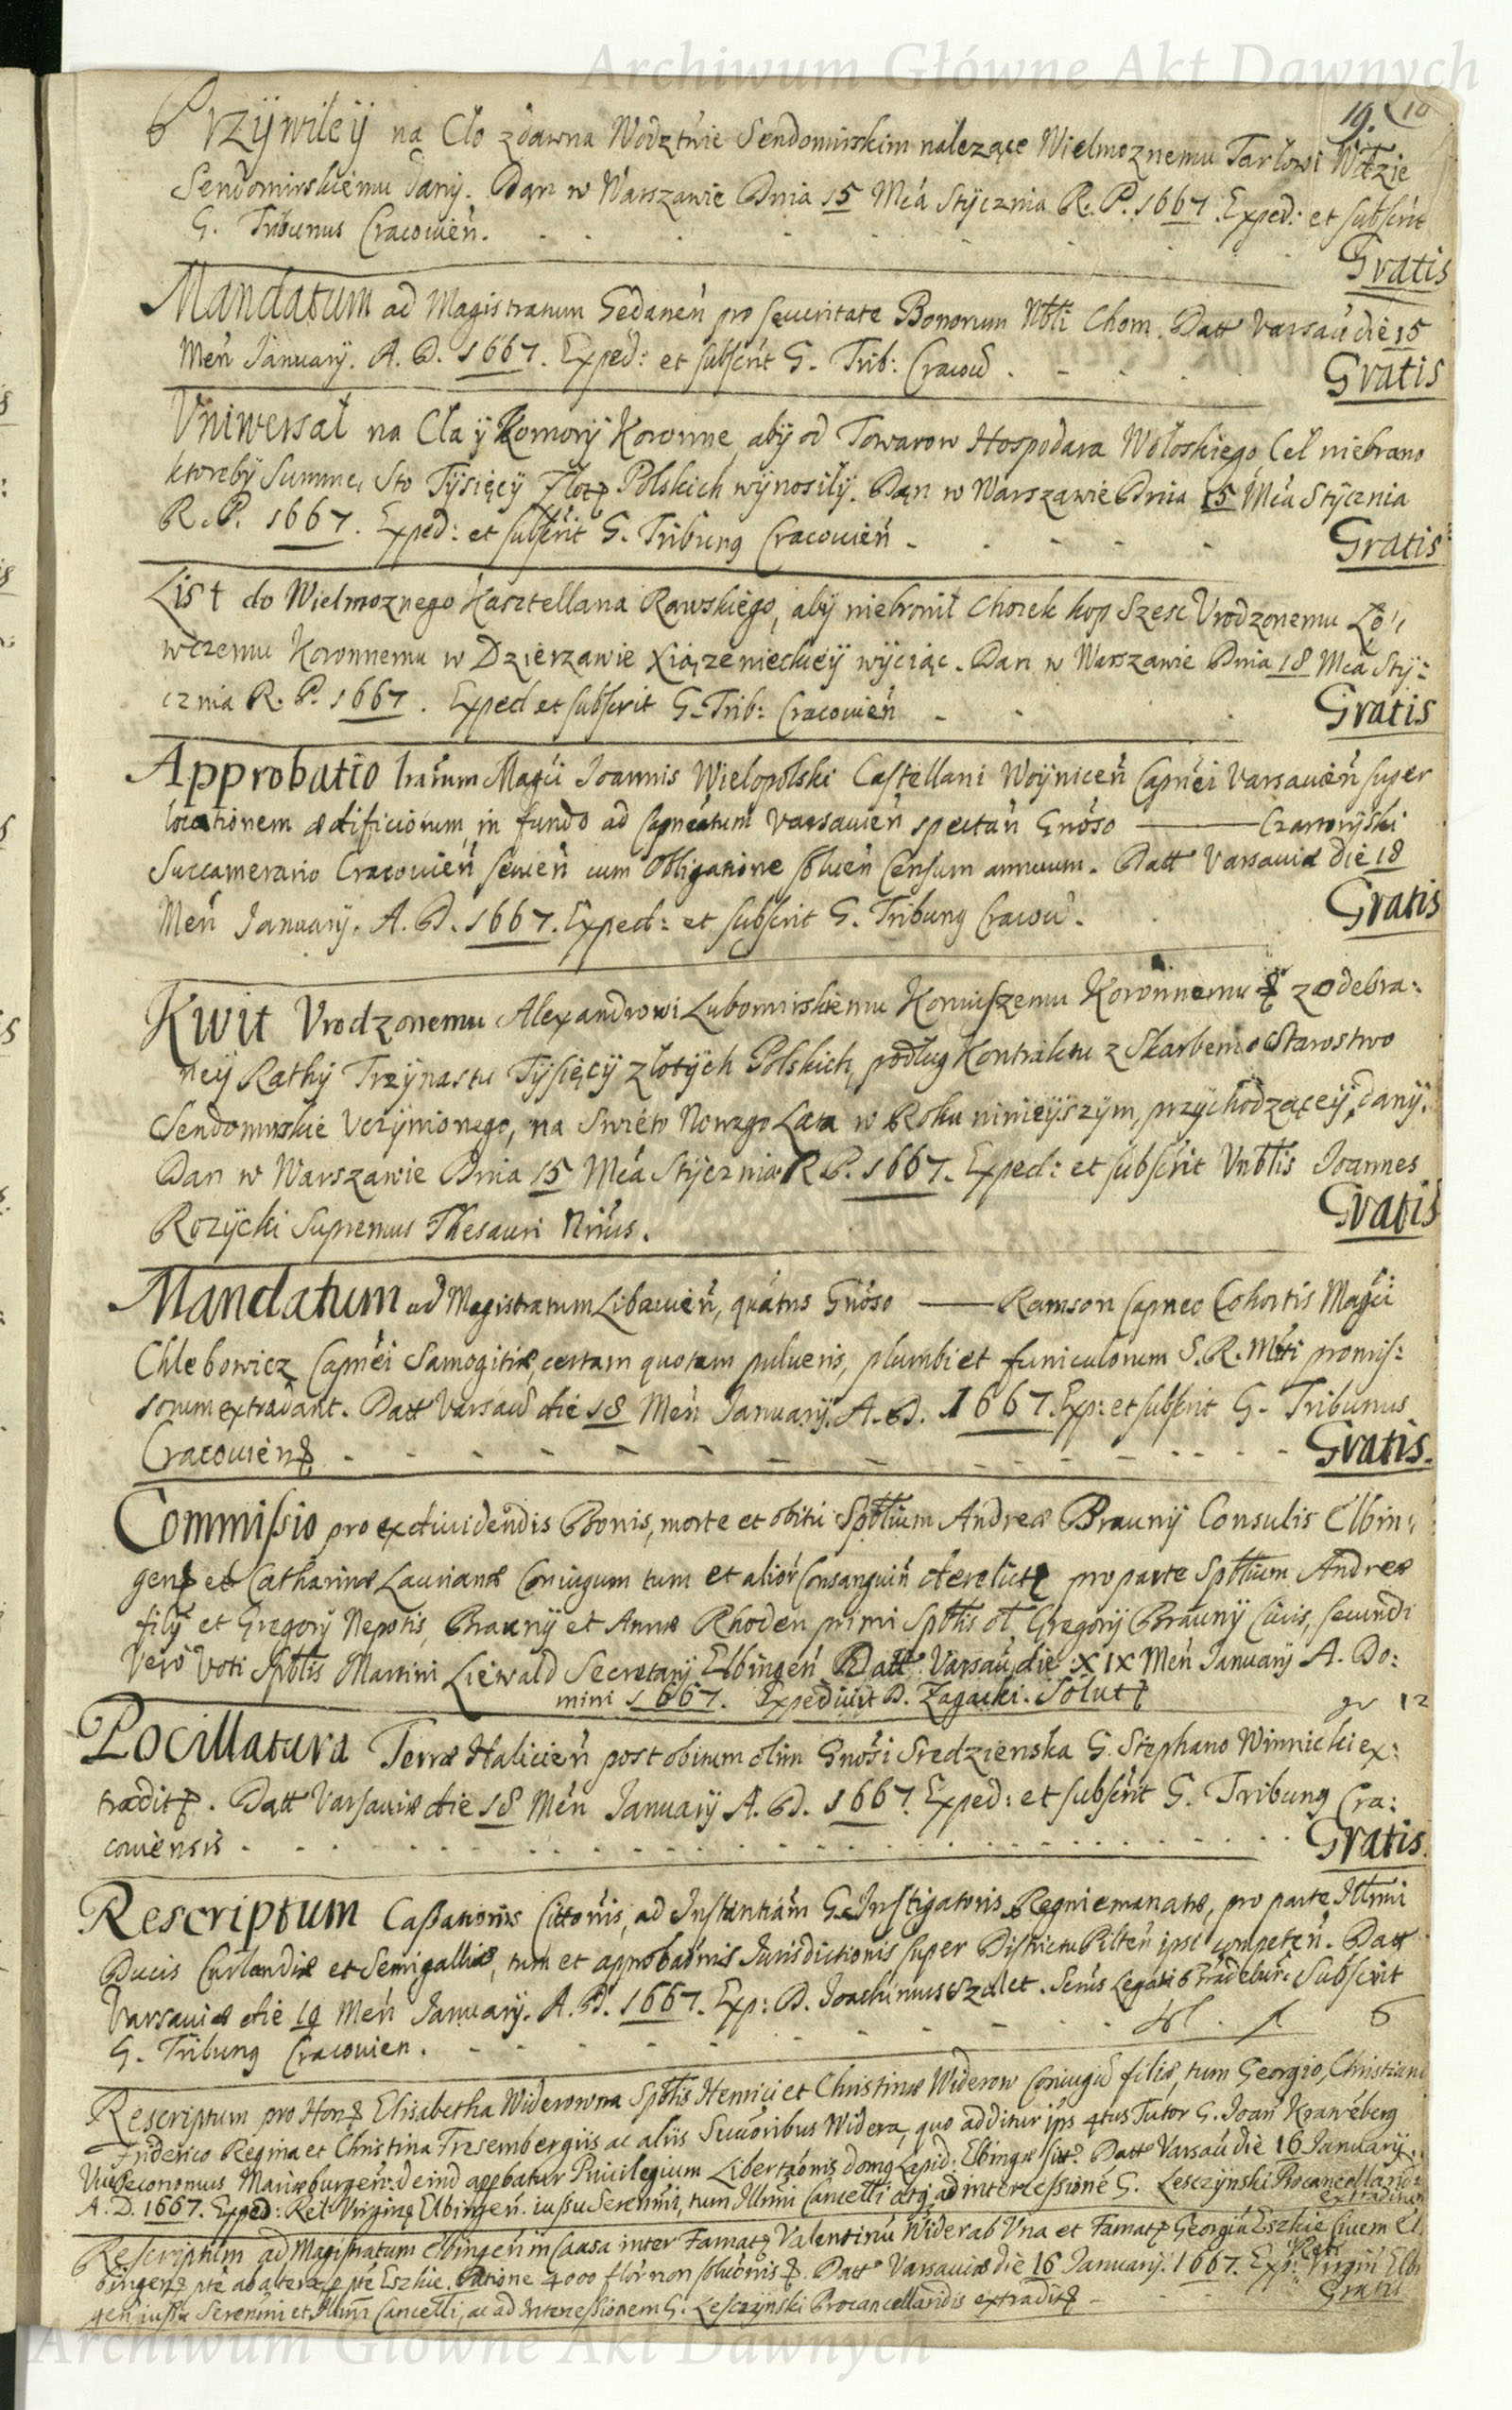 Archiwum Główne Akt Dawnych
19. 10
Przÿwileÿ na Cło zdawna Wodztwie Sendomirskim nalezące Wielmoznemu Tarłowi Wdzie
Sendomirskiemu danÿ. Dan w Warszawie Dnia 15 Mca Stÿcznia R. P. 1667. Exped: et subscrit
G. Tribunus Cracouień.
Gratis
Mandatum ad Magistratum Gedaneń pro securitate Bonorum Nbli Chom. Datt Varsau die 15
Meń Januarÿ. A. D. 1667. Exped: et subscrit G. Trib: Cracou.
Gratis
Vniwersał na Cła ÿ Komorÿ Koronne, abÿ od Towarow Hospodara Wołoskiego Ceł niebrano
ktorebÿ Summę Sto Tÿsięcÿ Złot Polskich wÿnosiłÿ. Dan w Warszawie Dnia 15 Mca Stÿcznia
R. P. 1667. Exped: et subscrit G. Tribung Cracouień
Gratis
List do Wielmoznego Kasztellana Rawskiego, abÿ niebronił Chorek kop Szesc Vrodzonemu Ło:
wczemu Koronnemu w Dzierzawie Xiązenieckieÿ wÿciąc. Dan w Warszawie Dnia 18 Mca Stÿ:
cznia R. P. 1667. Exped et subscrit G. Trib: Cracouień
Gratis
Approbatio lrarum Magci Joannis Wielopolski Castellani Woÿniceń Capnei Varsauień super
locationem ædificiorum in fundo ad Capneatum Varsauień spectań Gnoso — Czartorÿski
Succamerario Cracouień seruień cum Obligatione soluen Censum annuum. Datt Varsauiæ die 18
Meń Januarÿ. A. D. 1667. Exped: et subscrit G. Tribung Cracou.
Gratis
Kwit Vrodzonemu Alexandrowi Lubomirskiemu Koniuszemu Koronnemu z odebra:
neÿ Rathÿ Trzÿnastu Tÿsięcÿ złotÿch Polskich, podług Kontraktu z Skarbem o Starostwo
Sendomirskie Vczÿnionego, na Swięto Nowego Lata w Roku ninieÿszÿm, przÿchodzączeÿ, danÿ.
Dan w Warszawie Dnia 15 Mca Stÿcznia R. P. 1667. Exped: et subscrit Vnblis Joannes
Rozÿcki Supremus Thesauri Nrius.
Gratis
Mandatum ad Magistratum Libauień, quatus Gnoso — Ramson Capneo Cohortis Magci
Chlebowicz Capnei Samogitiæ, certam quotam pulueris, plumbi et funiculorum S. R. Mtti promis:
sorum extradant. Datt Varsau die 18 Meń Januarÿ. A. D. 1667. Exp: et subscrit G. Tribunus
Cracouien
Gratis.
Commissio pro exdiuidendis Bonis, morte et obitu Spblium Andreæ Braunÿ Consulis Elbin:
gen et Catharinæ Laurianæ Coniugum tum et alior Consanguin derelict pro parte Spblium Andreæ
filÿ et Gregorÿ Nepotis, Braunÿ et Annæ Rhoden primi Spblis ol Gregorÿ Braunÿ Ciuis, secundi
Vero Voti Spblis Martini Liewald Secretarÿ Elbingeń. Datt Varsau die XIX Meń Januarÿ A. Do:
mini 1667. Expediuit D. Zagacki. Solut
gr 12
Pocillatura Terræ Halicień post obitum olim Gnosi Sredzienska G. Stephano Winnicki ex:
tradit. Datt Varsauiæ die 18 Meń Januarÿ A. D. 1667. Exped: et subscrit G. Tribung Cra:
couiensis
Gratis.
Rescriptum Cassationis Cittonis, ad Instantiam G. Instigatoris Regni emanatæ, pro parte Illmi
Ducis Curlandiæ et Semigalliæ, tum et approbaonis Jurisdictionis super Districtu Pilteń ipsi competeń. Datt
Varsauiæ die 19 Meń Januarÿ. A. D. 1667. Exp: D. Joachimus Szulet. Subscrit
G. Tribung Cracouien.
6
Rescriptum pro Hon Elisabetha Widerowna Spblis Henrici et Christinæ Widerow Coniugu filiæ, tum Georgio, Christiano
Friderico Regina et Christina Fresembergiis ac aliis Successoribus Widera, quo additur ips Tutor G. Joan Kraweberg
Vice Oeconomus Mariæburgeń: deind appbatur Priuilegium Libertaonis domg Lapid: Elbingæ sitt. Datt Varsau die 16 Januarÿ.
A. D. 1667. Exped: Rel Virging Elbingeń. iussu Serenmi, tum Illmi Cancelli atq ad intercessione G. Lesczÿnski Procancellariis
extraditum
Rescriptum ad Magistratum Elbingeń in Causa inter Famat Valentinu Wider ab Vna et Famat Georgiu Eszkie Ciuem El
bingen pte ab altera pte Eszkie. Ratione 4000 flor non solutionis. Datt Varsauiæ die 16 Januarÿ. 1667. Exp: Relt Virgin Elbi
geń iussu Serenmi et Illmi Cancelli, ac ad Intercessionem G. Lesczÿnski Procancellariis extradit
Gratis
Archiwum Główne Akt Dawnych